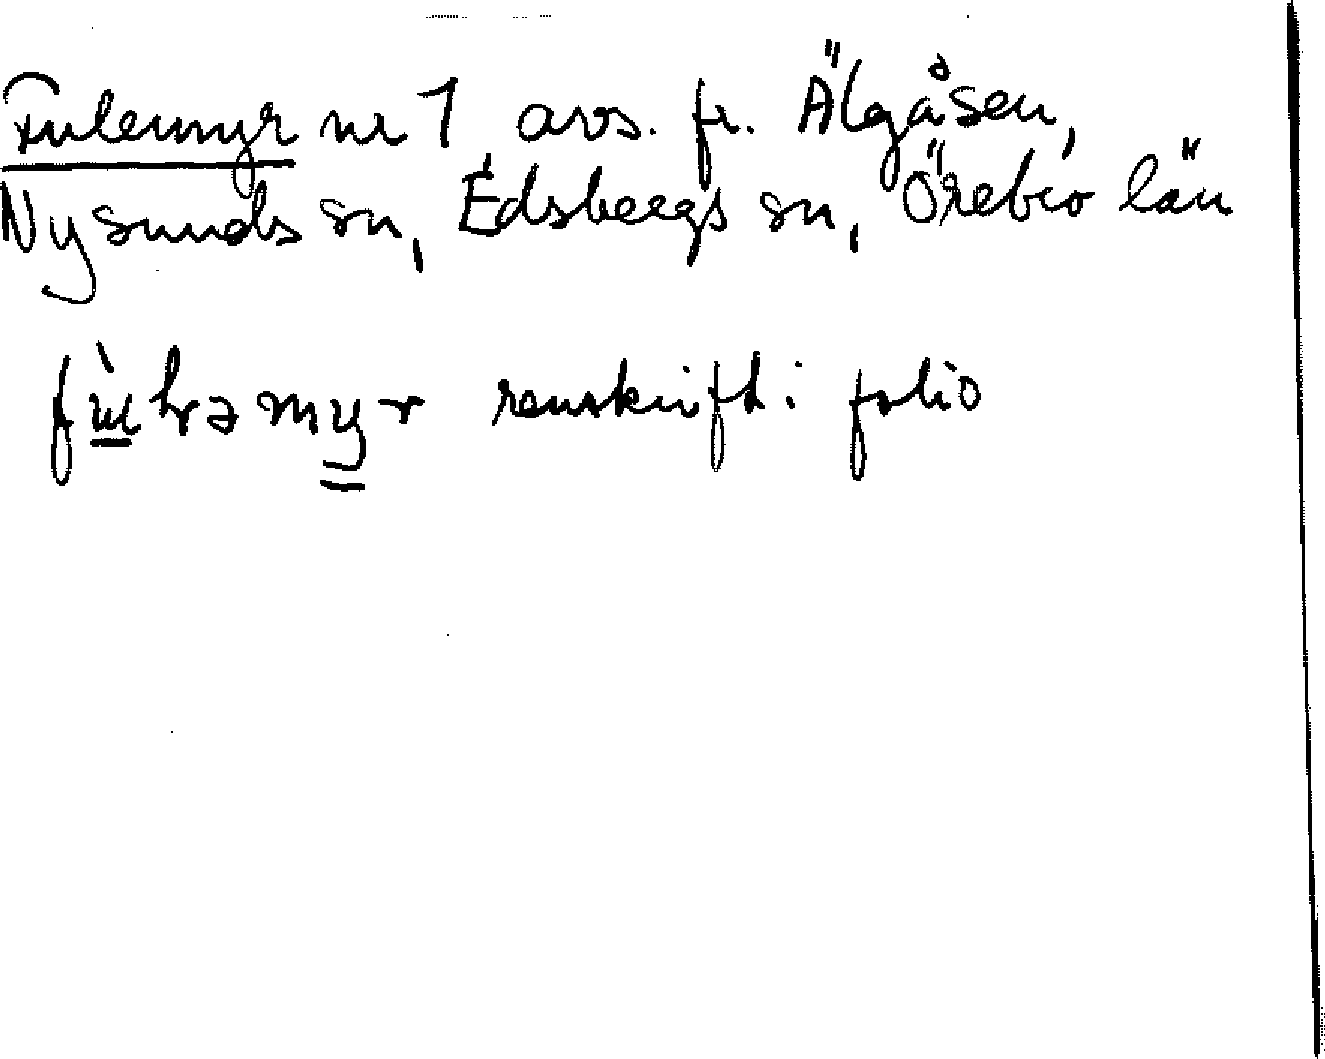 Fulemyr nr 1, avs. fr. Älgåsen,
Nysunds sn, Edsbergs sn, Örebro län
renskrift: folio